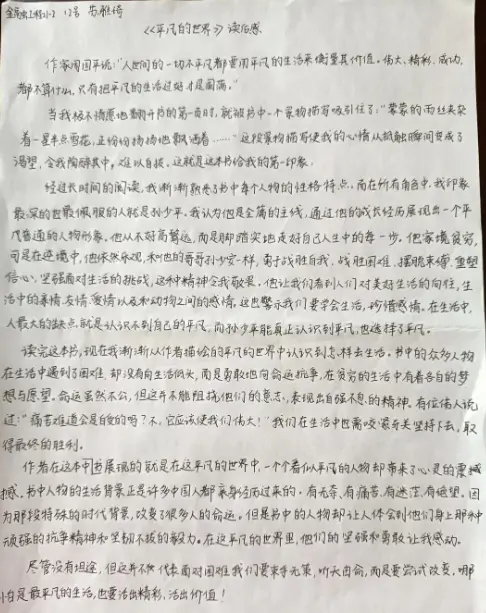 金属材工程21-2 12号 苏雅琦
《《平凡的世界》读后感
作家周国平说:“人世间的一切不平凡都要用平凡的生活来衡量其价值。伟大、精彩、成功,
都不算什么,只有把平凡的生活过好才是圆满。”
当我极不情愿地翻开书的第一页时,就被书中一个景物描写吸引住了:“蒙蒙的雨丝夹杂
着一星半点雪花,正纷纷扬扬地飘洒着……”这段景物描写使我的心情从抵触瞬间变成了
渴望,令我陶醉其中,难以自拔。这就是这本书给我的第一印象。
经过长时间的阅读,我渐渐熟悉了书中每个人的性格特点。而在所有角色中,我印象
最深的也最佩服的人就是孙少平。我认为他是全篇的主线,通过他的成长经历展现出一个平
凡普通的人物形象。他从不好高骛远,而是脚踏实地走好自己人生中的每一步。他家境贫穷,
可是在逆境中,他依然乐观,和他的哥哥孙少安一样,勇于战胜自我,战胜困难,摆脱束缚,重塑
信心,坚强面对生活的挑战,这种精神令我敬畏。他让我们看到人们对美好生活的向往,生
活中的亲情友情、爱情以及和动物之间的感情。这也警示我们要学会生活,珍惜感情。在生活中,
人最大的缺点就是认识不到自己的平凡,而孙少平能真正认识到平凡,也选择了平凡。
读完这本书,现在我渐渐从作者描绘的平凡的世界中认识到怎样去生活。书中的众多人物
在生活中遇到了困难,却没有向生活低头,而是勇敢地向命运抗争,在贫穷的生活中有着各自的梦
想与愿望。命运虽然不公,但这并不能阻挠他们的意志,表现出自强不息的精神。有位伟人说
过:“痛苦难道会是白受的吗?不,它应该使我们伟大!”我们在生活中也需咬紧牙关坚持下去,取
得最终的胜利。
作者在这本书展现的就是在这平凡的世界中,一个个看似平凡的人物却带来了心灵的震撼
撼。书中人物的生活背景正是许多中国人都亲身经历过来的。有无奈,有痛苦,有迷茫,有绝望。因
为那段特殊的时代背景,改变了很多人的命运。但是书中的人物却让人体会到他们身上那种
顽强的抗争精神和坚韧不拔的毅力。在这平凡的世界里,他们的坚强和勇敢让我感动。
尽管没有坦途,但这并不代表面对困难我们要束手无策,听天由命,而是要尝试改变,哪
怕是最平凡的生活,也要活出精彩,活出价值!